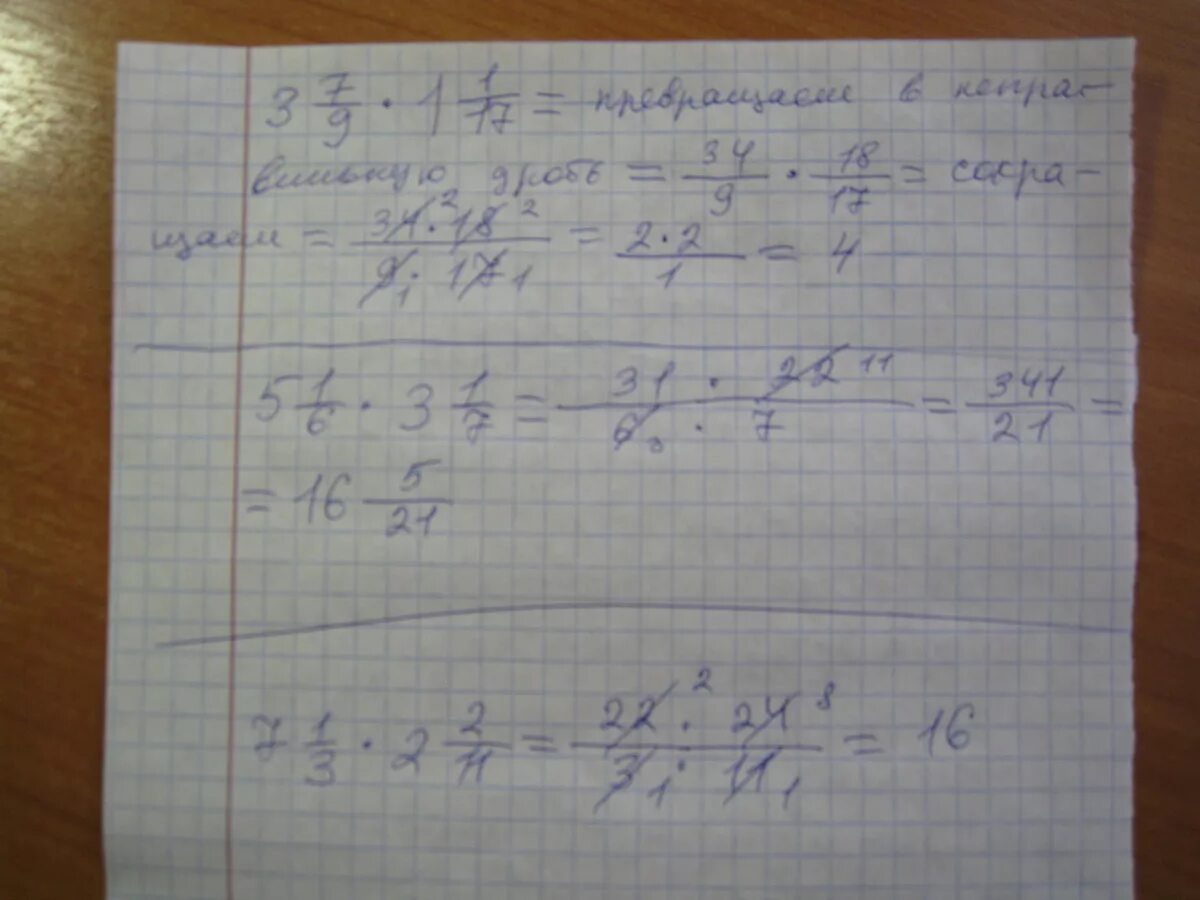 3 7/9 · 1 1/17 = превращаем в неправ-
вильную дробь = 34/9 · 18/17 = сокра-
щаем = 34 2 · 18 2 / 9 1 · 17 1 = 2·2/1 = 4
5 1/6 · 3 1/7 = 31 · 22 11 / 6 3 · 7 = 341/21 =
= 16 5/21
7 1/3 · 2 2/11 = 22 2 · 24 8 / 3 1 · 11 1 = 16